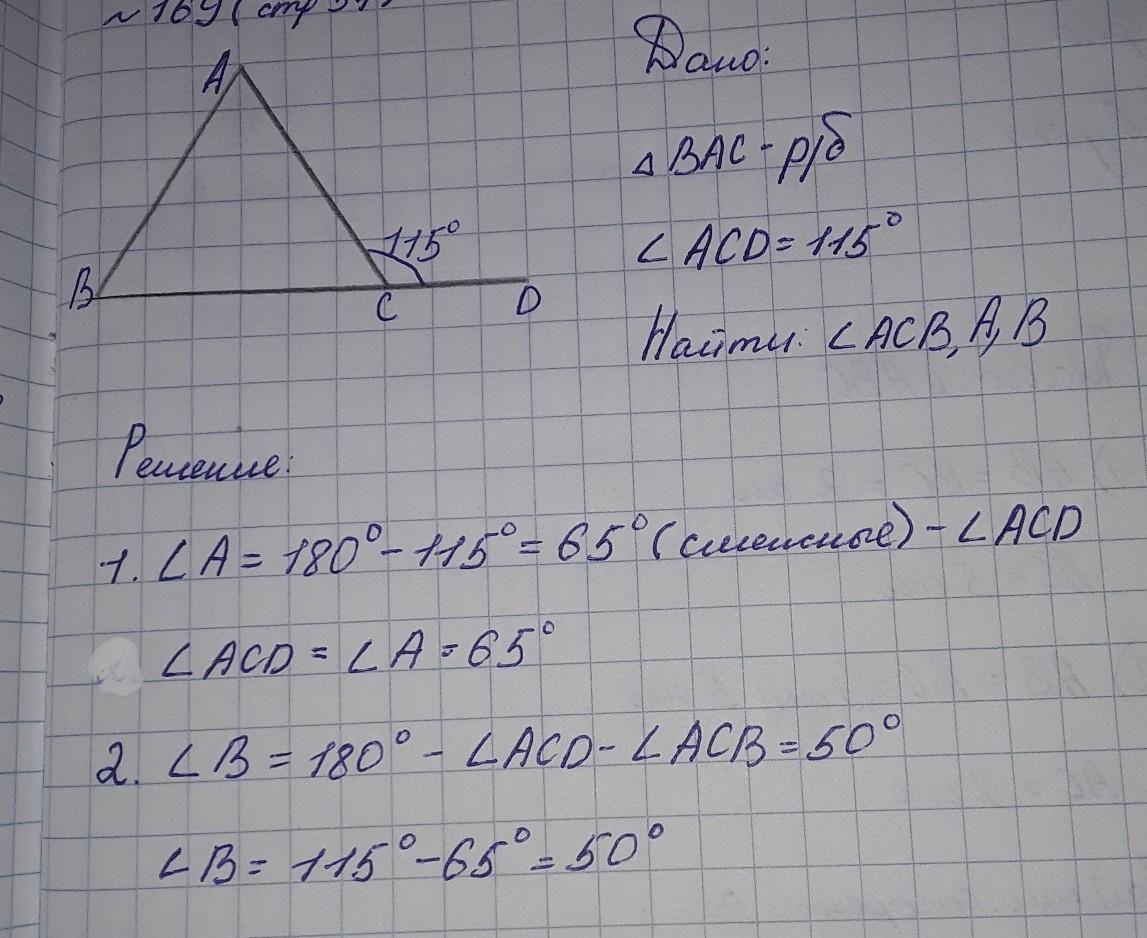 ~169 (стр
A
115°
B
C
D
Дано:
△ BAC - р/б
∠ ACD = 115°
Найти: ∠ ACB, A, B
Решение:
1. ∠ A = 180° - 115° = 65° (смежные) - ∠ ACD
∠ ACD = ∠ A = 65°
2. ∠ B = 180° - ∠ ACD - ∠ ACB = 50°
∠ B = 115° - 65° = 50°